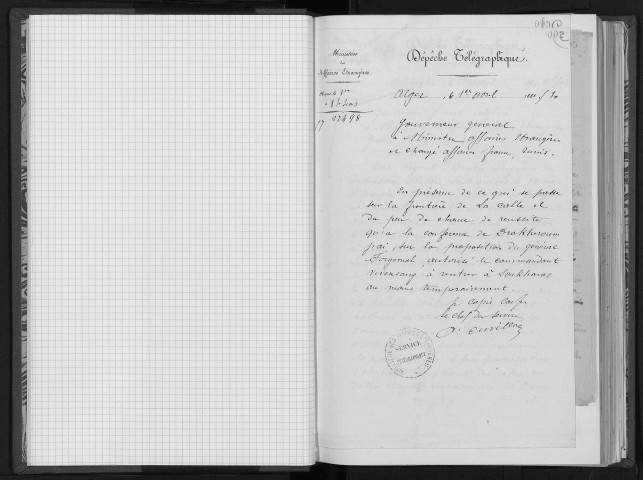 Ministère
des
Affaires Etrangères
Dépêche Télégraphique.
Alger, le 1er avril
17
Gouverneur général
à Ministre affaires Etrangères
et chargé affaires france, Tunis.
En présence de ce qui se passe
sur la frontière de La Calle et
du peu de chance de réussite
qu'a la conférence de
j'ai, sur la proposition du général
Forgemol, autorisé le commandant
Vivensang, à rentrer à Soukharas
au moins temporairement.
p. copie conf.
le chef du service
SERVICE